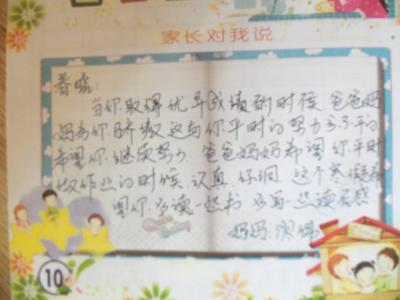 家长对我说
春晓:
当你取得优异成绩的时候,爸爸妈
妈为你骄傲这与你平时的努力分不开的
希望你继续努力 爸爸妈妈希望你平时
做作业的时候,认真,仔细,这个寒假希
望你多读一些书 多写一些读后感
妈妈:
10